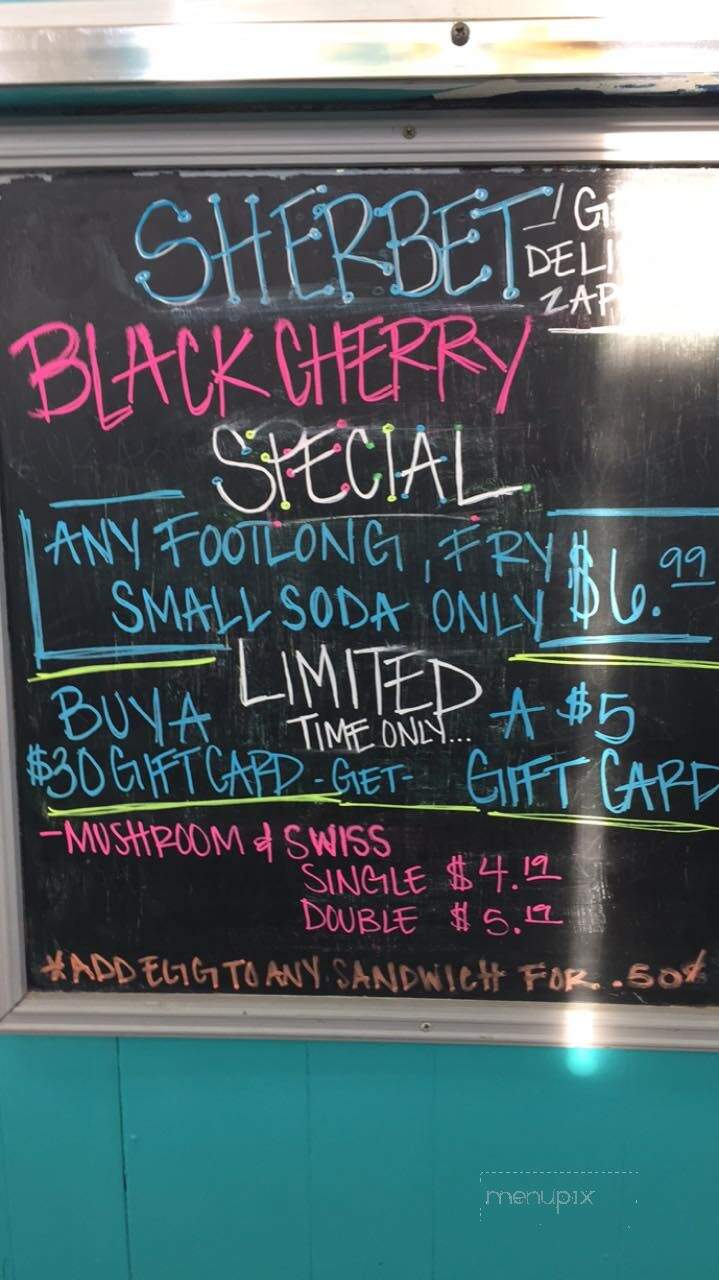 SHERBET
BLACK CHERRY
SPECIAL
ANY FOOTLONG, FRY
SMALL SODA ONLY $6.99
LIMITED
TIME ONLY...
BUY A
$30 GIFT CARD -GET-
A $5
GIFT CARD
-MUSHROOM & SWISS
SINGLE $4.19
DOUBLE $5.19
*ADD EGG TO ANY SANDWICH FOR .50¢
menupix